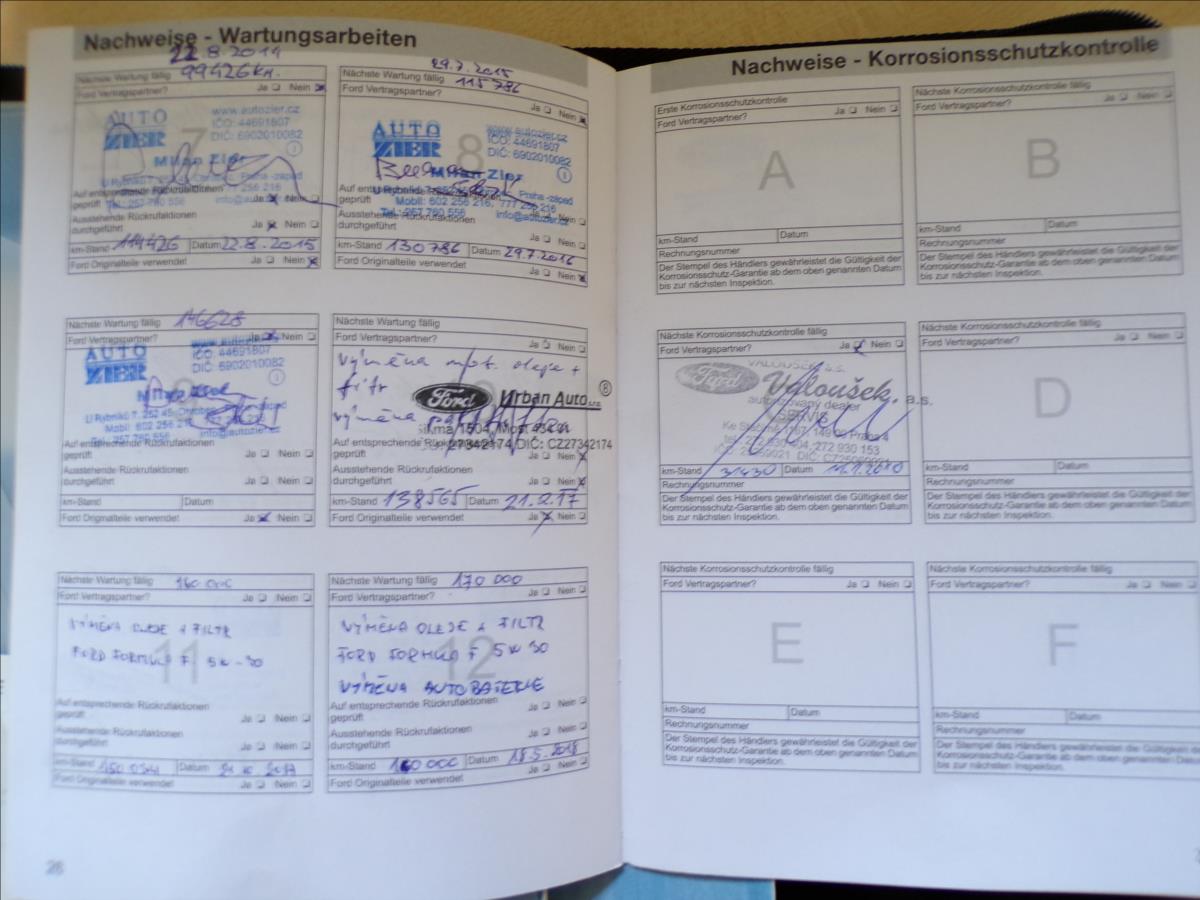 Nachweise - Wartungsarbeiten
22.8.2014
Nächste Wartung fällig 99426km.
Ford Vertragspartner? Ja Nein
7
AUTO ZIER
www.autozier.cz
IČO: 44691807
DIČ: 6902010082
Milan Zier
U Rybníků 7, Praha -západ
Tel.: 257 780 556
Auf entsprechende Rückrufaktionen geprüft Ja Nein
Ausstehende Rückrufaktionen
durchgeführt Ja Nein
km-Stand 114426 Datum 22.8.2015
Ford Originalteile verwendet Ja Nein
29.7.2015
Nächste Wartung fällig 115786
Ford Vertragspartner? Ja Nein
8
AUTO ZIER
www.autozier.cz
IČO: 44691807
DIČ: 6902010082
Milan Zier
U Rybníků 7, Praha -západ
Mobil: 602 256 216, 777 256 216
Tel.: 257 780 556 info@autozier.cz
geprüft Ja Nein
Ausstehende Rückrufaktionen
durchgeführt Ja Nein
km-Stand 130786 Datum 29.7.2016
Ford Originalteile verwendet Ja Nein
Nächste Wartung fällig 146628
Ford Vertragspartner? Ja Nein
AUTO ZIER
IČO: 44691807
DIČ: 6902010082
U Rybníků 7, 252 45
Mobil: 602 256 216
Tel.: 257 780 556 info@autozier.cz
Auf entsprechende Rückrufaktionen
geprüft Ja Nein
Ausstehende Rückrufaktionen
durchgeführt Ja Nein
km-Stand Datum
Ford Originalteile verwendet Ja Nein
Nächste Wartung fällig
Ford Vertragspartner? Ja Nein
výměna mot. oleje +
filtr
výměna
Ford Urban Auto s.r.o. 8
1504, Most 434 01
27342174 DIČ: CZ27342174
Auf entsprechende
geprüft Ja Nein
Ausstehende Rückrufaktionen
durchgeführt Ja Nein
km-Stand 138565 Datum 21.2.17
Ford Originalteile verwendet Ja Nein
Nächste Wartung fällig 160 000
Ford Vertragspartner? Ja Nein
11
VÝMĚNA OLEJE + FILTR
FORD FORMULA F 5W-30
Auf entsprechende Rückrufaktionen
geprüft Ja Nein
Ausstehende Rückrufaktionen
durchgeführt Ja Nein
km-Stand Datum 2017
Ford Originalteile verwendet Ja Nein
Nächste Wartung fällig 170 000
Ford Vertragspartner? Ja Nein
12
VÝMĚNA OLEJE + FILTR
FORD FORMULA F 5W 30
VÝMĚNA AUTOBATERIE
Auf entsprechende Rückrufaktionen
geprüft Ja Nein
Ausstehende Rückrufaktionen
durchgeführt Ja Nein
km-Stand 160 000 Datum 18.5.2018
Ford Originalteile verwendet Ja Nein
26
Nachweise - Korrosionsschutzkontrolle
Erste Korrosionsschutzkontrolle
Ford Vertragspartner? Ja Nein
A
km-Stand Datum
Rechnungsnummer
Der Stempel des Händlers gewährleistet die Gültigkeit der
Korrosionsschutz-Garantie ab dem oben genannten Datum
bis zur nächsten Inspektion.
Nächste Korrosionsschutzkontrolle fällig
Ford Vertragspartner? Ja Nein
B
km-Stand Datum
Rechnungsnummer
Der Stempel des Händlers gewährleistet die Gültigkeit der
Korrosionsschutz-Garantie ab dem oben genannten Datum
bis zur nächsten Inspektion.
Nächste Korrosionsschutzkontrolle fällig
Ford Vertragspartner? Ja Nein
VALOUŠEK a.s.
Ford Valoušek, a.s.
autorizovaný dealer
SERVIS
149 00 Praha 4
272 930 153
km-Stand 31430 Datum
Rechnungsnummer
Der Stempel des Händlers gewährleistet die Gültigkeit der
Korrosionsschutz-Garantie ab dem oben genannten Datum
bis zur nächsten Inspektion.
Nächste Korrosionsschutzkontrolle fällig
Ford Vertragspartner? Ja Nein
D
km-Stand Datum
Rechnungsnummer
Der Stempel des Händlers gewährleistet die Gültigkeit der
Korrosionsschutz-Garantie ab dem oben genannten Datum
bis zur nächsten Inspektion.
Nächste Korrosionsschutzkontrolle fällig
Ford Vertragspartner? Ja Nein
E
km-Stand Datum
Rechnungsnummer
Der Stempel des Händlers gewährleistet die Gültigkeit der
Korrosionsschutz-Garantie ab dem oben genannten Datum
bis zur nächsten Inspektion.
Nächste Korrosionsschutzkontrolle fällig
Ford Vertragspartner? Ja Nein
F
km-Stand Datum
Rechnungsnummer
Der Stempel des Händlers gewährleistet die Gültigkeit der
Korrosionsschutz-Garantie ab dem oben genannten Datum
bis zur nächsten Inspektion.